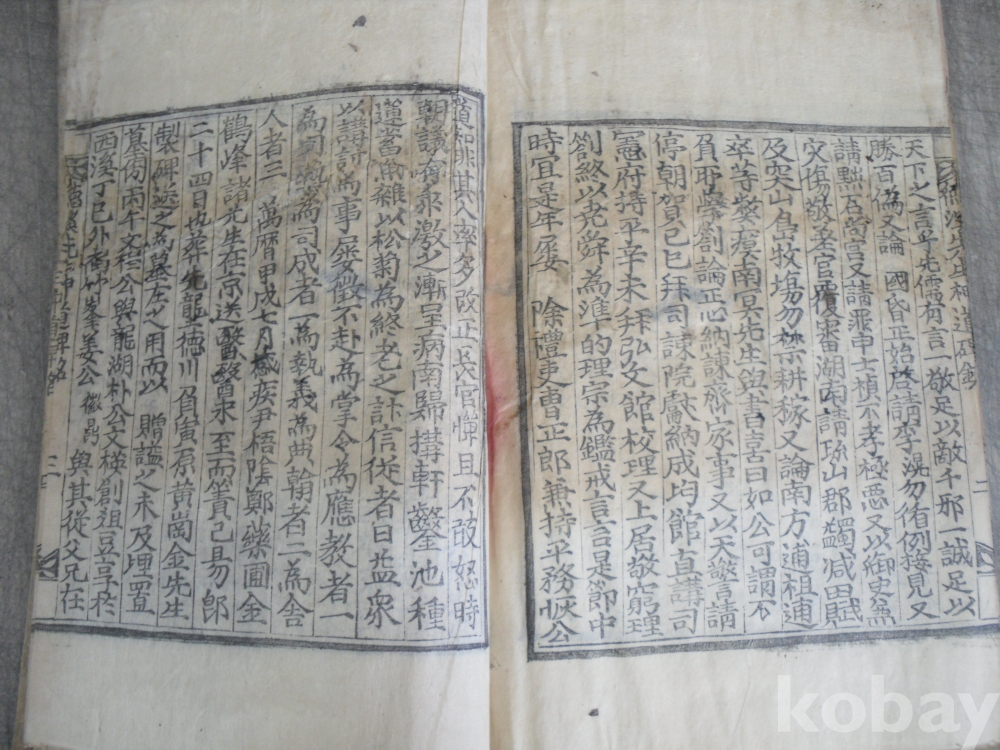 天下之言乎先儒有言一敬足以敵千邪一誠足以
勝百僞又論 國昏正始啓請李滉勿循例接見又
請黜 又請罪申士楨不孝極惡又以御史
災傷敬差官覆審湖南請珍山郡蠲减田賦
及突山島牧場勿禁耕稼又論南方逋租逋
卒等獘㾮南冥先生與書喜曰如公可謂不
負所學劄論正心納諫齊家事又以天警請
停朝賀己巳拜司諫院獻納成均館直講司
憲府持平辛未拜弘文館校理又上居敬窮理
劄終以堯舜爲準的理宗爲鑑戒言言是節中
時宜是年屢 除禮吏曹正郎兼持平務恢公
道知非其人率多改正長官憚且不敢
朝議 乖激之漸呈病南歸搆軒鑿池種
蓮 以松菊爲終老之計信從者日益衆
以講討爲事屢徵不赴爲掌令爲應教者一
爲司 爲司成者一爲執義爲典翰者二爲舍
人者三 萬曆甲戌七月感疾尹梧陰鄭藥圃金
鶴峰諸先生在京送醫 至而簀已易 卽
二十四日也葬 龍王德川 負寅原黃岡金先生
製碑送之爲墓左之用而以 贈諡之未及埋置
墓傍丙午文穆公與龍湖朴公文楧創俎豆享於
西溪丁巳外裔竹峯姜公徽昌 與其從父兄在